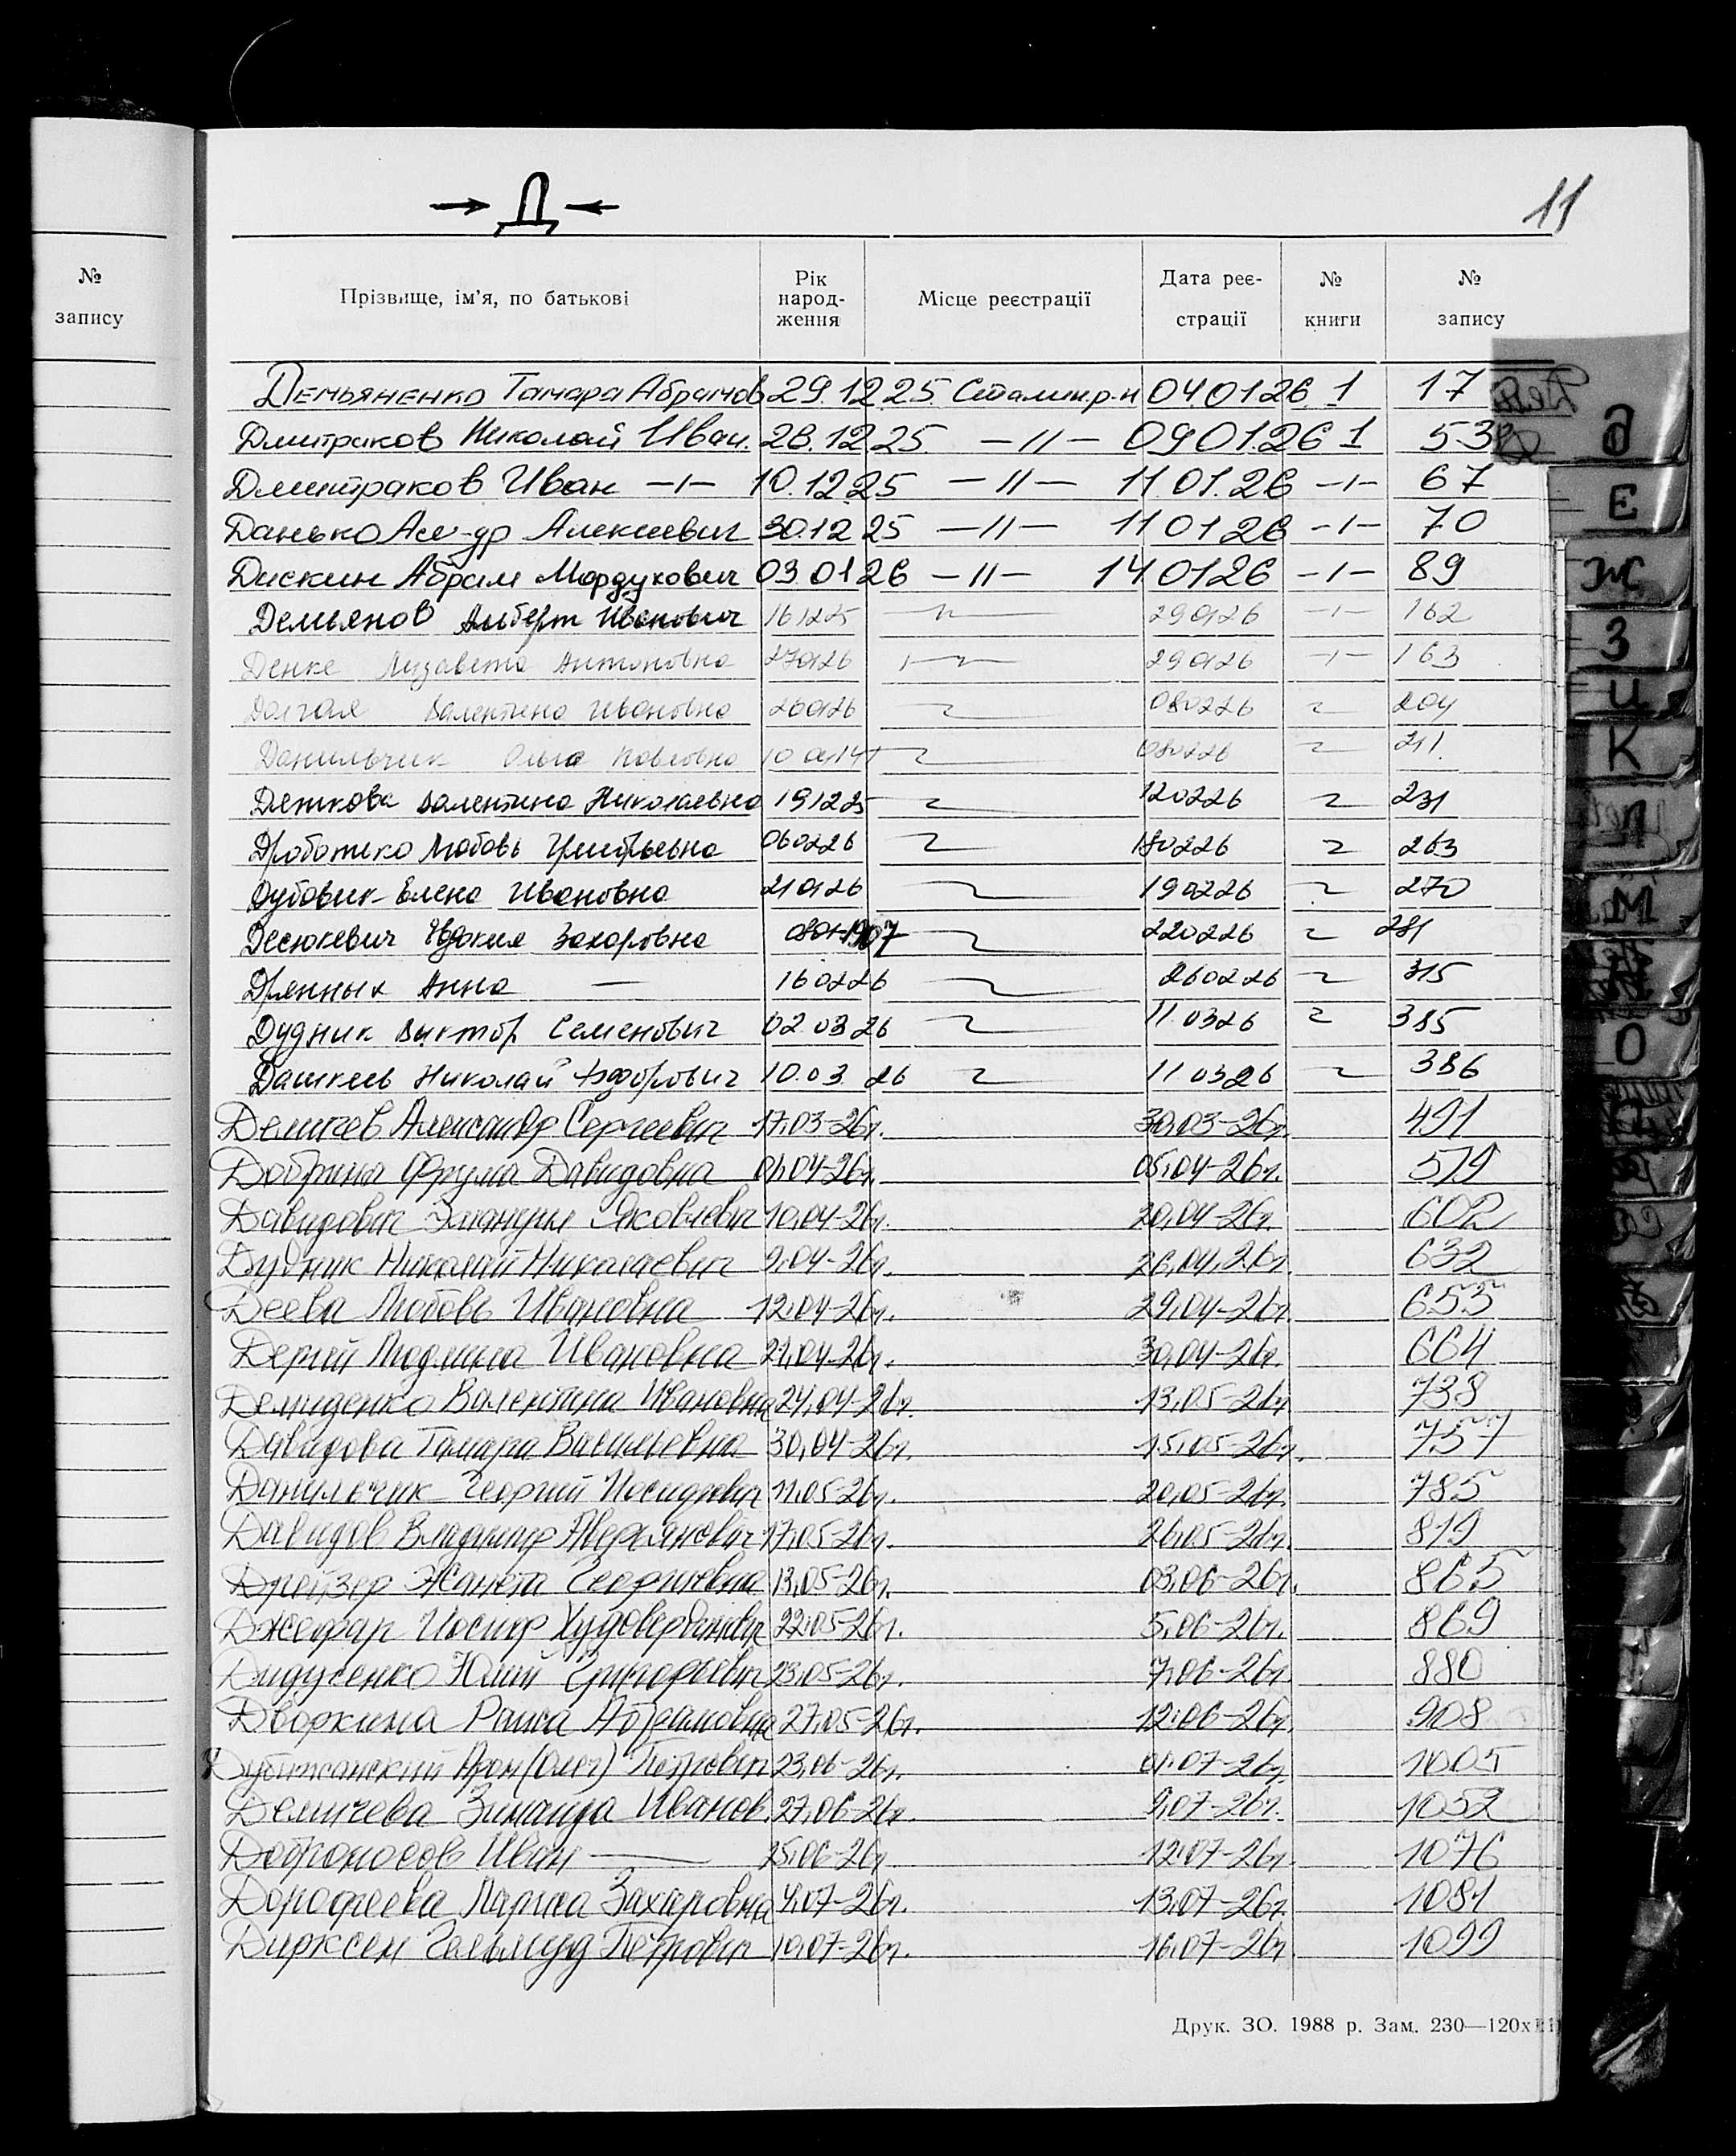 → Д ←
11
№ запису
Прізвище, ім’я, по батькові Рік народ- ження Місце реєстрації Дата реє- страції № книги № запису
Демьяненко Тамара Абрамов 29.12 25 Сталин.р-н 04.01.26 1 17
Дмитраков Николай Иван. 28.12 25. —//— 09.01.26 1 53
Дмитраков Иван —ı— 10.12 25 —//— 11.01.26 —ı— 67
Данько Але-др Алексеевич 30.12 25 —//— 11 01 26 —ı— 70
Дискин Абрам Мордухович 03.01 26 —//— 14 01 26 —ı— 89
Демьянов Альберт Иванович 16 12 25 —"— 29 01 26 —ı— 162
Денке Лизавета Антоновна 27 01 26 29 01 26 —ı— 163
Долгая Валентина Ивановна 26 01 26 08 02 26 204
Данильчик Ольга Павловна 10 01 14 08 02 26 211
Деткова Валентина Николаевна 19 12 25 12 02 26 231
Дроботько Любовь Григорьевна 06 02 26 18 02 26 263
Дубовик Елена Ивановна 21 01 26 19 02 26 270
Десюкевич Евдокия Захаровна 1907 22 02 26 281
Дрянных Анна — 16 02 26 26 02 26 315
Дудник Виктор Семенович 02.03 26 11.03 26 385
Дашкев Николай Фёдорович 10.03. 26 11 03 26 386
Демичев Александр Сергеевич 17.03-26г. 30.03-26г. 491
Добрина Фрума Давидовна 01.04-26г. 05.04-26г. 579
Давидович Эмануил Яковлевич 10.04-26г. 20.04-26г. 602
Дудник Николай Николаевич 9.04-26г. 26.04.26г. 632
Деева Любовь Ивановна 12.04-26г. 29.04-26г. 655
Дерий Людмила Ивановна 21.04-26г. 30.04-26г. 664
Демиденко Валентина Ивановна 24.04-26г. 13.05-26г. 738
Давидова Тамара Васильевна 30.04-26г. 15.05-26г. 757
Данильчик Георгий Иосифович 11.05-26г. 20.05-26г. 785
Давидов Владимир Аверьянович 17.05-26г. 26.05-26г. 819
Дрейзер Жанета Георгиевна 13.05-26г. 03.06-26г. 865
Джефар Иосиф Худовердинович 22.05-26г. 5.06-26г. 869
Дидусенко Юлий Григорьевич 23.05-26г. 7.06-26г. 880
Дворкина Раиса Абрамовна 27.05-26г. 12.06-26г. 908
Дубижанский Арон (Олег) Петрович 23.06-26г. 01.07-26г. 1005
Демичева Зинаида Иванов. 27.06-26г. 9.07-26г. 1052
Доброносов Иван — 25.06-26г. 12.07-26г. 1076
Дорофеева Лариса Захаровна 4.07-26г. 13.07-26г. 1081
Дирксен Гельмуд Петрович 10.07-26г. 16.07-26г. 1099
Друк. ЗО. 1988 р. Зам. 230—120х
Е
Ж
З
И
К
Л
М
О